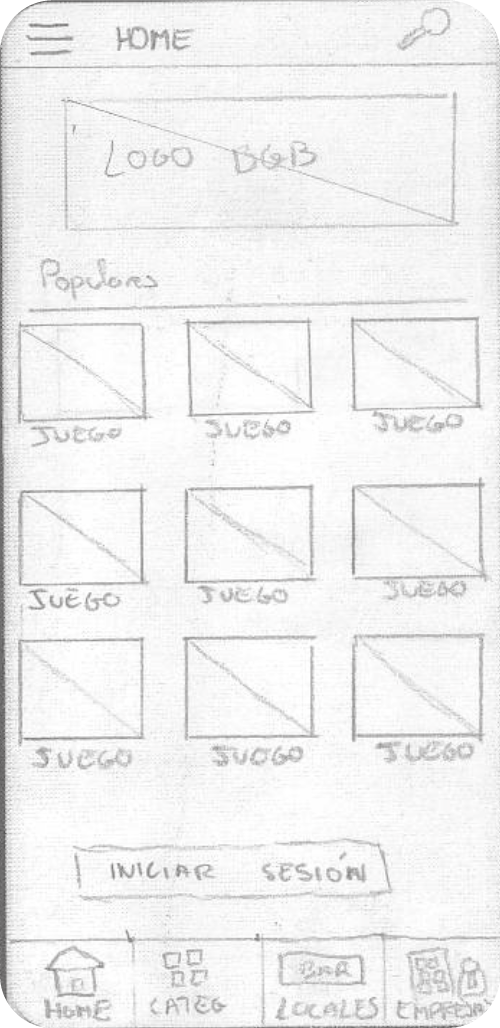 HOME
LOGO BGB
Populares
JUEGO JUEGO JUEGO
JUEGO JUEGO JUEGO
JUEGO JUEGO JUEGO
INICIAR SESIÓN
BAR
HOME CATEG LOCALES EMPRESAS